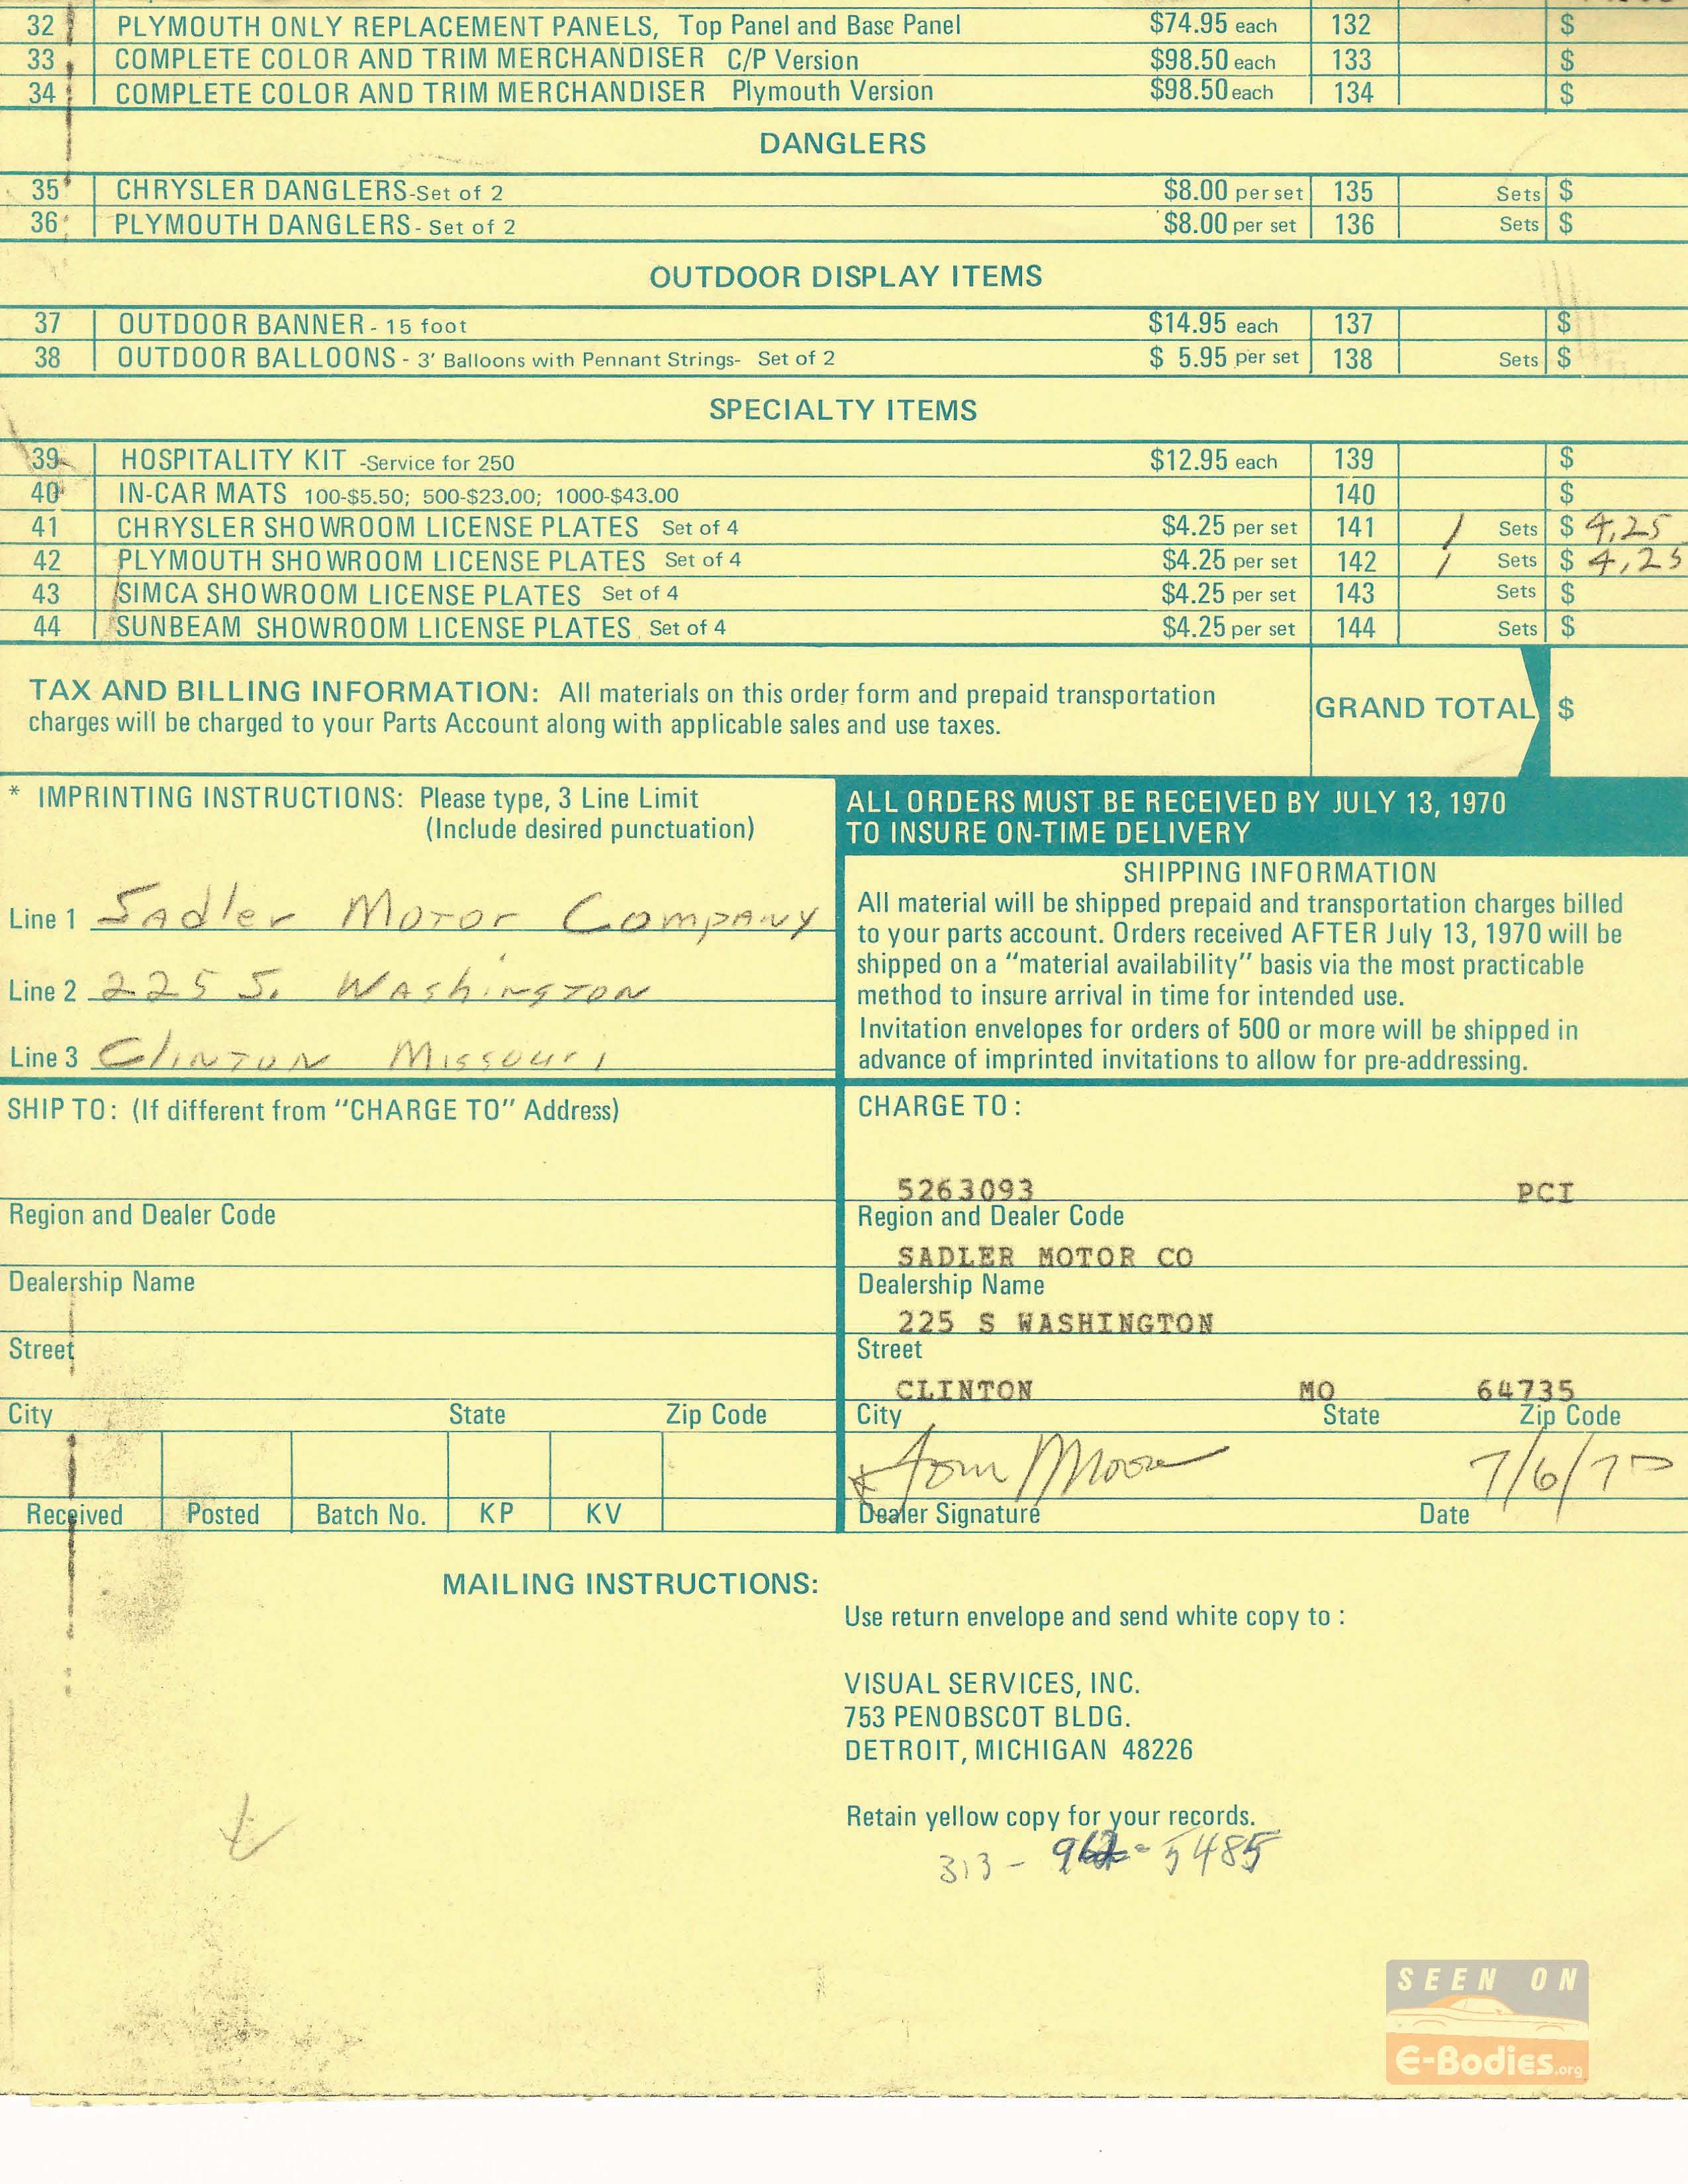 32 PLYMOUTH ONLY REPLACEMENT PANELS, Top Panel and Base Panel $74.95 each 132 $
33 COMPLETE COLOR AND TRIM MERCHANDISER C/P Version $98.50 each 133 $
34 COMPLETE COLOR AND TRIM MERCHANDISER Plymouth Version $98.50 each 134 $
DANGLERS
35 CHRYSLER DANGLERS-Set of 2 $8.00 per set 135 Sets $
36 PLYMOUTH DANGLERS- Set of 2 $8.00 per set 136 Sets $
OUTDOOR DISPLAY ITEMS
37 OUTDOOR BANNER - 15 foot $14.95 each 137 $
38 OUTDOOR BALLOONS - 3' Balloons with Pennant Strings- Set of 2 $ 5.95 per set 138 Sets $
SPECIALTY ITEMS
39 HOSPITALITY KIT -Service for 250 $12.95 each 139 $
40 IN-CAR MATS 100-$5.50; 500-$23.00; 1000-$43.00 140 $
41 CHRYSLER SHOWROOM LICENSE PLATES Set of 4 $4.25 per set 141 1 Sets $ 4.25
42 PLYMOUTH SHOWROOM LICENSE PLATES Set of 4 $4.25 per set 142 1 Sets $ 4.25
43 SIMCA SHOWROOM LICENSE PLATES Set of 4 $4.25 per set 143 Sets $
44 SUNBEAM SHOWROOM LICENSE PLATES Set of 4 $4.25 per set 144 Sets $
TAX AND BILLING INFORMATION: All materials on this order form and prepaid transportation
charges will be charged to your Parts Account along with applicable sales and use taxes.
GRAND TOTAL $
* IMPRINTING INSTRUCTIONS: Please type, 3 Line Limit
(Include desired punctuation)
Line 1 Sadler Motor Company
Line 2 225 S. Washington
Line 3 Clinton Missouri
ALL ORDERS MUST BE RECEIVED BY JULY 13, 1970
TO INSURE ON-TIME DELIVERY
SHIPPING INFORMATION
All material will be shipped prepaid and transportation charges billed
to your parts account. Orders received AFTER July 13, 1970 will be
shipped on a "material availability" basis via the most practicable
method to insure arrival in time for intended use.
Invitation envelopes for orders of 500 or more will be shipped in
advance of imprinted invitations to allow for pre-addressing.
SHIP TO: (If different from "CHARGE TO" Address)
Region and Dealer Code
Dealership Name
Street
City State Zip Code
Received Posted Batch No. KP KV
CHARGE TO:
5263093 PCI
Region and Dealer Code
SADLER MOTOR CO
Dealership Name
225 S WASHINGTON
Street
CLINTON MO 64735
City State Zip Code
Tom Moore 7/6/70
Dealer Signature Date
MAILING INSTRUCTIONS:
Use return envelope and send white copy to :
VISUAL SERVICES, INC.
753 PENOBSCOT BLDG.
DETROIT, MICHIGAN 48226
Retain yellow copy for your records.
313 - 962 - 5485
SEEN ON
E-Bodies.org